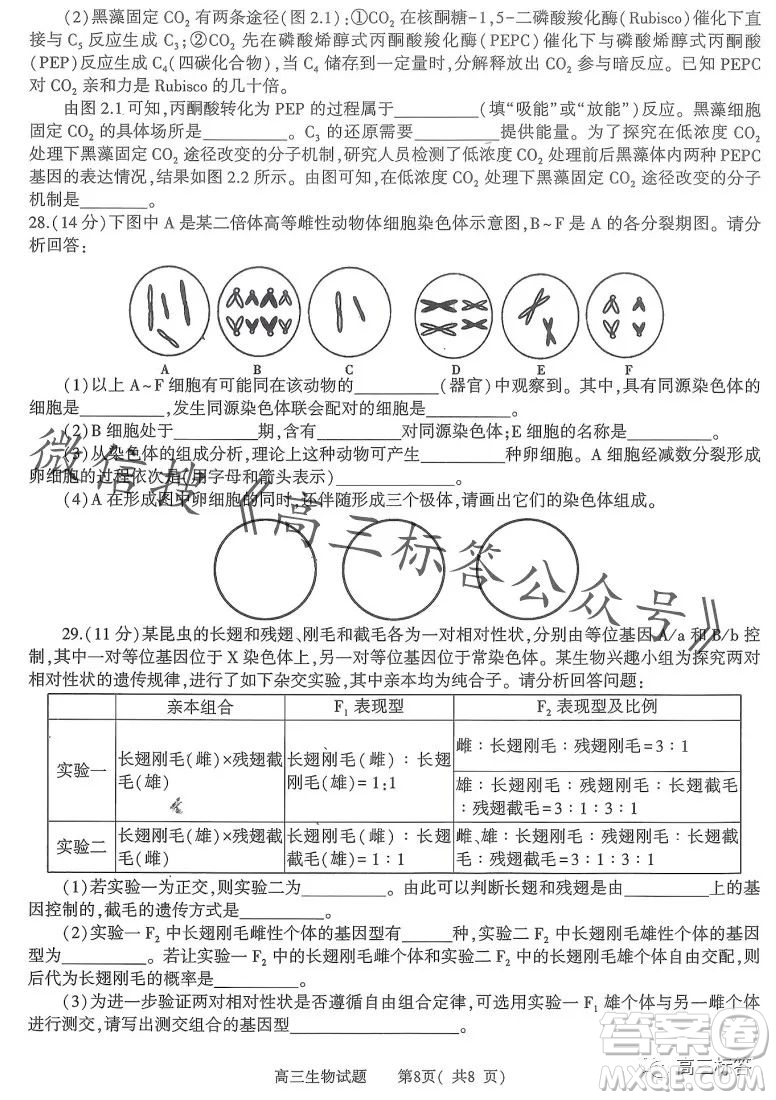 (2)黑藻固定CO₂有两条途径(图2.1):①CO₂在核酮糖-1,5-二磷酸羧化酶(Rubisco)催化下直
接与C₅反应生成C₃;②CO₂先在磷酸烯醇式丙酮酸羧化酶(PEPC)催化下与磷酸烯醇式丙酮酸
(PEP)反应生成C₄(四碳化合物),当C₄储存到一定量时,分解释放出CO₂参与暗反应。已知PEPC
对CO₂亲和力是Rubisco的几十倍。
由图2.1可知,丙酮酸转化为PEP的过程属于________(填“吸能”或“放能”)反应。黑藻细胞
固定CO₂的具体场所是________。C₃的还原需要________提供能量。为了探究在低浓度CO₂
处理下黑藻固定CO₂途径改变的分子机制,研究人员检测了低浓度CO₂处理前后黑藻体内两种PEPC
基因的表达情况,结果如图2.2所示。由图可知,在低浓度CO₂处理下黑藻固定CO₂途径改变的分子
机制是________。
28.(14分)下图中A是某二倍体高等雌性动物体细胞染色体示意图,B~F是A的各分裂期图。请分
析回答:
A B C D E F
(1)以上A~F细胞有可能同在该动物的________(器官)中观察到。其中,具有同源染色体的
细胞是________,发生同源染色体联会配对的细胞是________。
(2)B细胞处于________期,含有________对同源染色体;E细胞的名称是________。
(3)从染色体的组成分析,理论上这种动物可产生________种卵细胞。A细胞经减数分裂形成
卵细胞的过程依次是(用字母和箭头表示)________。
(4)A在形成图中卵细胞的同时,还伴随形成三个极体,请画出它们的染色体组成。
微信搜《高三标答公众号》
29.(11分)某昆虫的长翅和残翅、刚毛和截毛各为一对相对性状,分别由等位基因A/a和B/b控
制,其中一对等位基因位于X染色体上,另一对等位基因位于常染色体。某生物兴趣小组为探究两对
相对性状的遗传规律,进行了如下杂交实验,其中亲本均为纯合子。请分析回答问题:
亲本组合 F₁表现型 F₂表现型及比例
实验一 长翅刚毛(雌)×残翅截毛(雄) 长翅刚毛(雌):长翅刚毛(雄)=1:1 雌:长翅刚毛:残翅刚毛=3:1
雄:长翅刚毛:残翅刚毛:长翅截毛:残翅截毛=3:1:3:1
实验二 长翅刚毛(雄)×残翅截毛(雌) 长翅刚毛(雌):长翅截毛(雄)=1:1 雌、雄:长翅刚毛:残翅刚毛:长翅截毛:残翅截毛=3:1:3:1
(1)若实验一为正交,则实验二为________。由此可以判断长翅和残翅是由________上的基
因控制的,截毛的遗传方式是________。
(2)实验一F₂中长翅刚毛雌性个体的基因型有______种,实验二F₂中长翅刚毛雄性个体的基因
型为______。若让实验一F₂中的长翅刚毛个体和实验二F₂中的长翅刚毛个体自由交配,则
后代为长翅刚毛的概率是________。
(3)为进一步验证两对相对性状是否遵循自由组合定律,可选用实验一F₁雄个体与另一雌个体
进行测交,请写出测交组合的基因型________________。
高三生物试题 第8页( 共8 页)
答案圈
高三标答
MXQE.COM